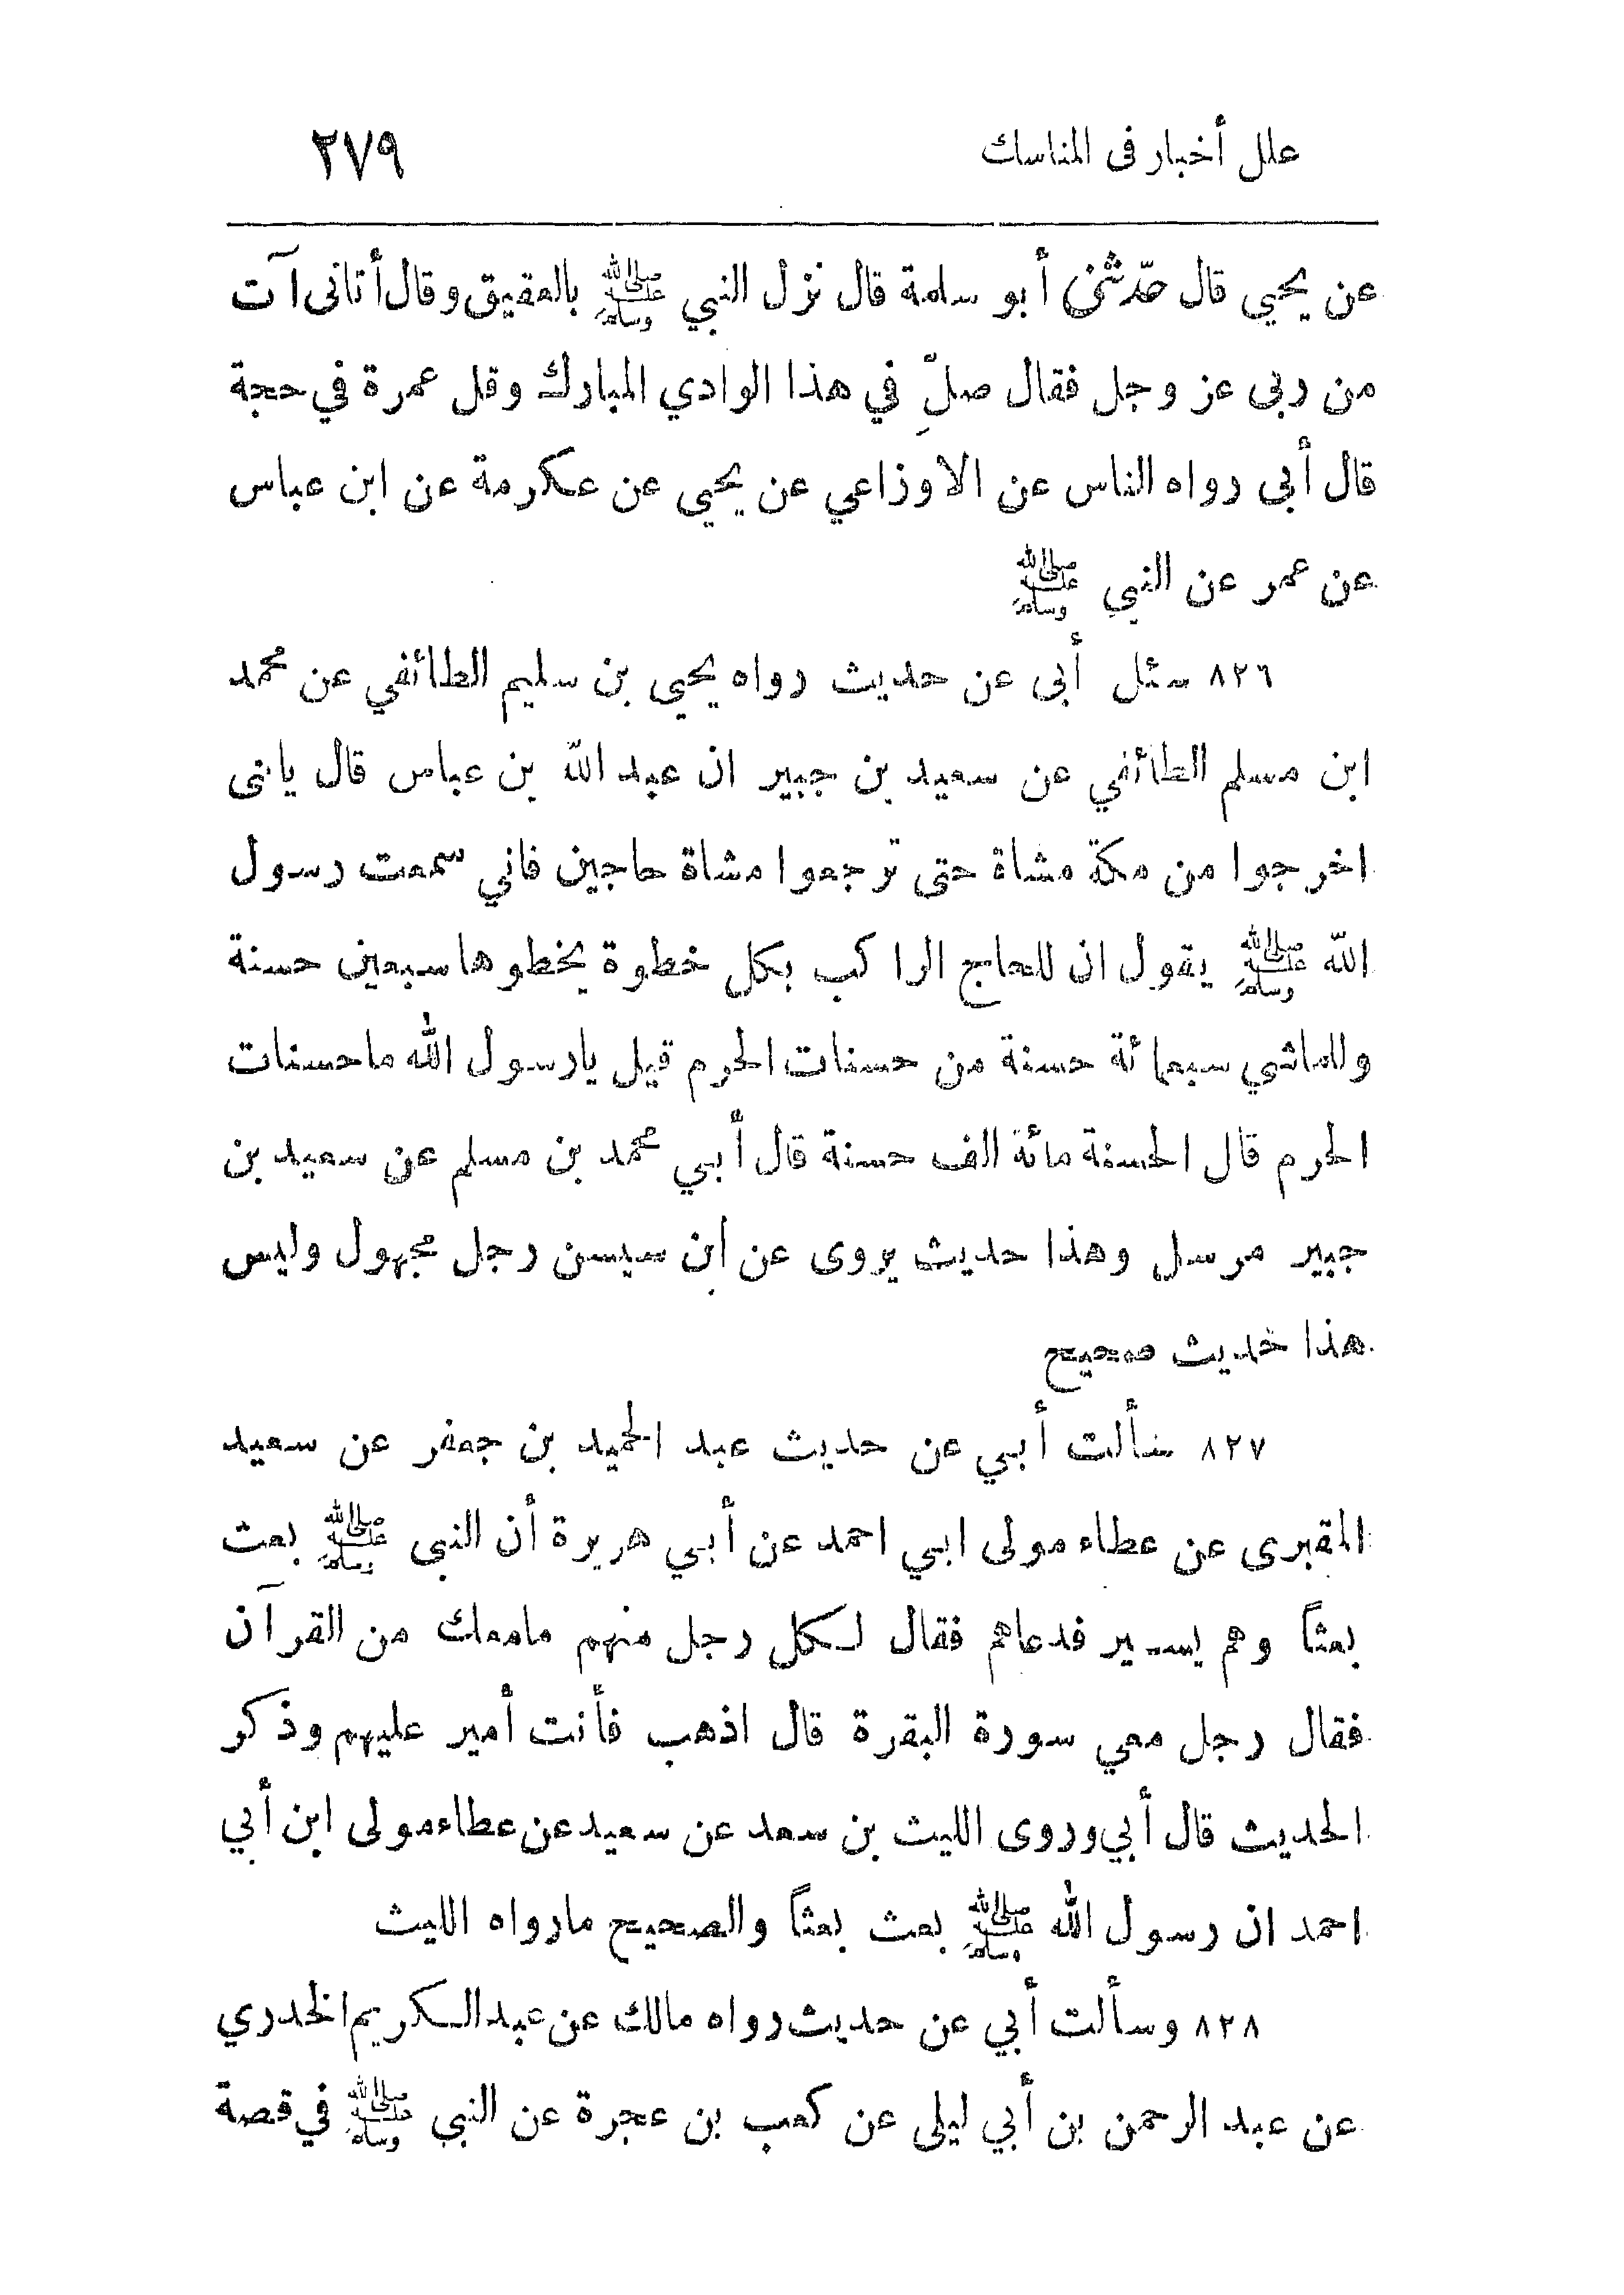 علل أخبار فى المناسك ٢٧٩
عن يحيى قال حدّثنى أبو سلمة قال نزل النبي ﷺ بالعقيق وقال أتانى آت
من ربى عز وجل فقال صلِّ في هذا الوادي المبارك وقل عمرة في حجة
قال أبى رواه الناس عن الاوزاعي عن يحيى عن عكرمة عن ابن عباس
عن عمر عن النبي ﷺ
٨٢٦ سئل أبى عن حديث رواه يحيى بن سليم الطائفي عن محمد
ابن مسلم الطائفي عن سعيد بن جبير ان عبد الله بن عباس قال يابنى
اخرجوا من مكة مشاة حتى ترجعوا مشاة حاجين فاني سمعت رسول
الله ﷺ يقول ان للحاج الراكب بكل خطوة يخطوها سبعين حسنة
وللماشي سبعمائة حسنة من حسنات الحرم قيل يارسول الله ماحسنات
الحرم قال الحسنة مائة الف حسنة قال أبي محمد بن مسلم عن سعيد بن
جبير مرسل وهذا حديث يروى عن ابن سيسن رجل مجهول وليس
هذا حديث صحيح
٨٢٧ سألت أبي عن حديث عبد الحميد بن جعفر عن سعيد
المقبرى عن عطاء مولى ابي احمد عن أبي هريرة أن النبي ﷺ بعث
بعثاً وهم يسير فدعاهم فقال لكل رجل منهم مامعك من القرآن
فقال رجل معي سورة البقرة قال اذهب فأنت أمير عليهم وذكر
الحديث قال أبي وروى الليث بن سعد عن سعيد عن عطاء مولى ابن أبي
احمد ان رسول الله ﷺ بعث بعثاً والصحيح مارواه الليث
٨٢٨ وسألت أبي عن حديث رواه مالك عن عبد الكريم الخدري
عن عبد الرحمن بن أبي ليلى عن كعب بن عجرة عن النبي ﷺ في قصة